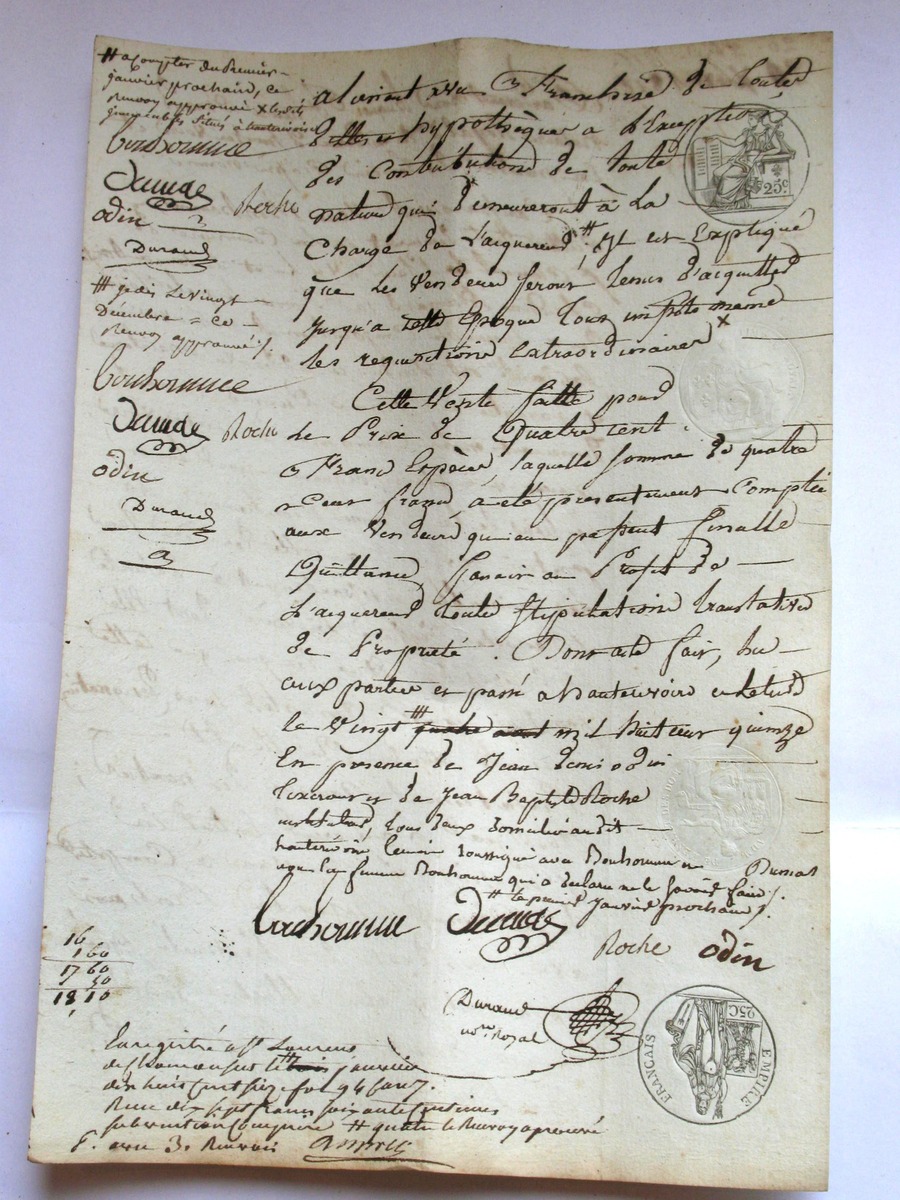 # a Compter du Premier
janvier prochain, ce
Renvoy approuvé X lesdits
immeubles situés à hauterivoire
bonhomme
Dumas
odin
Roche
Durand
a Présent avec Franchise de toutes
Dettes hypothèques a L'Exception
des Contributions de toute
nature qui demeureront à La
Charge de L'acquereur # Il est Expliqué
que Les Vendeurs seront tenus d'acquitter
jusqu'a cette Epoque tous impôts même
les requisitions extraordinaires X
# je dis Le Vingt
Decembre = ce
Renvoy approuvé /.
bonhomme
Dumas
Roche
odin
Durand
Cette Vente faitte pour
Le Prix de Quatre cent
Francs Espèces, laquelle somme de quatre
Cent francs, a été présentement Comptée
aux Vendeurs qui en passent finalle
Quittance, Sans au Profit de
L'acquereur toute Stipulation translative
de Proprieté. Dont acte fait, lu
aux parties et passé a hauterivoire en Letude
le Vingt quatre aout mil huit cent quinze
En presence de Jean denis odin
et de Jean Baptiste Roche
instituteur, tous deux domiciliés audit
hauterivoire temoins soussignés avec Bonhomme et Dumas
non la femme Bonhomme qui a déclaré ne le savoir faire /.
# le premier Janvier prochain /.
bonhomme Dumas Roche odin
16
1 60
17 60
50
18 10
Durand
no.re Royal
Enregistré a St Laurent
de Chamousset le trois janvier
dix huit Cent seize fol 94
Reçu dix sept francs soixante Centimes
subvention Comprise # quatre le Renvoy aprouvé
avec 3. Renvois
25 C
25 C
EMPIRE FRANÇAIS